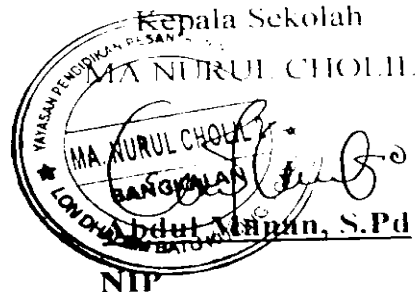 Kepala Sekolah
MA NURUL CHOLIL
YAYASAN PENDIDIKAN PESAN
MA. NURUL CHOLIL
BANGKALAN
Abdul , S.Pd
NIP